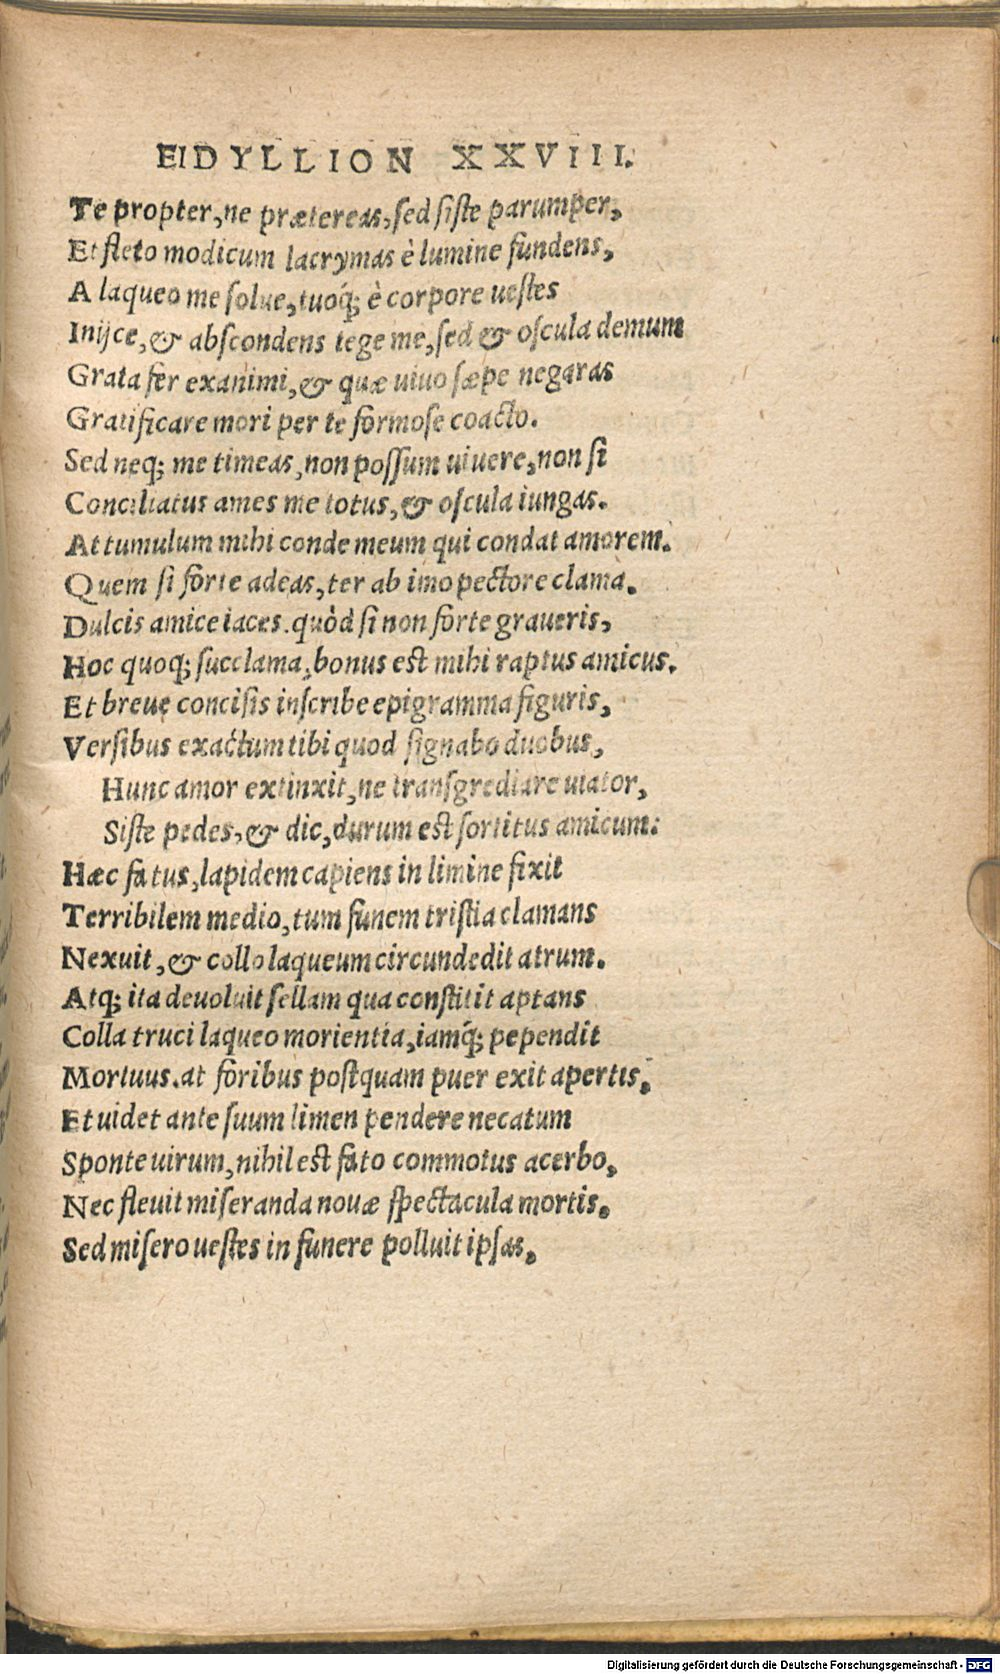 EIDYLLION XXVIII.
Te propter, ne prætereas, sed siste parumper,
Et fleto modicum lacrymas è lumine fundens,
A laqueo me solue, tuoq́; è corpore uestes
Inijce, & abscondens tege me, sed & oscula demum
Grata fer exanimi, & quæ uiuo sæpe negaras
Gratificare mori per te formose coacto.
Sed neq; me timeas, non possum uiuere, non si
Conciliatus ames me totus, & oscula iungas.
At tumulum mihi conde meum qui condat amorem.
Quem si forte adeas, ter ab imo pectore clama.
Dulcis amice iaces. quòd si non forte graueris,
Hoc quoq; succlama, bonus est mihi raptus amicus.
Et breue concisis inscribe epigramma figuris,
Versibus exactum tibi quod signabo duobus,
Hunc amor extinxit, ne transgrediare uiator,
Siste pedes, & dic, durum est sortitus amicum:
Hæc fatus, lapidem capiens in limine fixit
Terribilem medio, tum funem tristia clamans
Nexuit, & collo laqueum circundedit atrum.
Atq; ita deuoluit sellam qua constitit aptans
Colla truci laqueo morientia, iamq́; pependit
Mortuus. at foribus postquam puer exit apertis,
Et uidet ante suum limen pendere necatum
Sponte uirum, nihil est fato commotus acerbo,
Nec fleuit miseranda nouæ spectacula mortis.
Sed misero uestes in funere polluit ipsas,
Digitalisierung gefördert durch die Deutsche Forschungsgemeinschaft - DFG